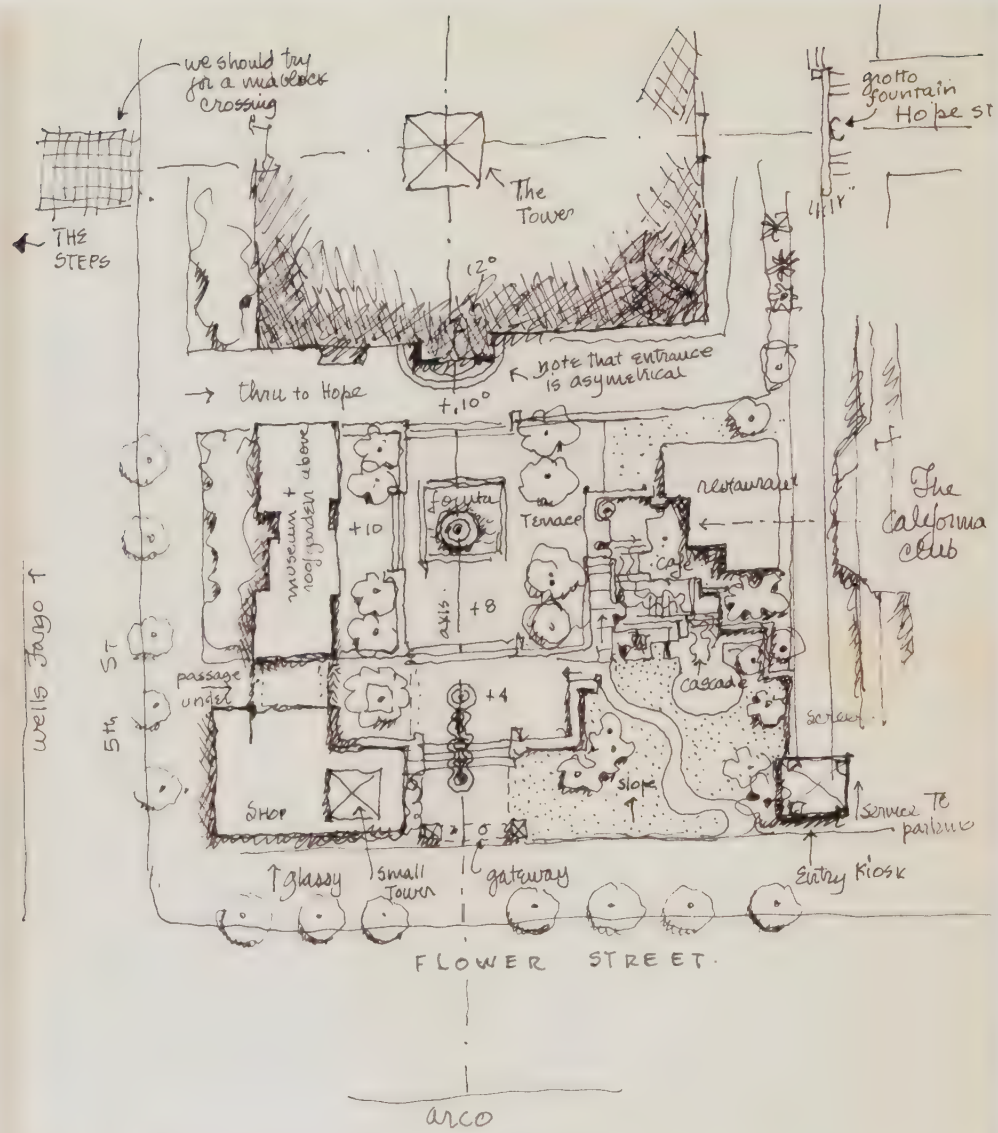 we should try
for a midblock
crossing
grotto
fountain
Hope ST
The
Tower
THE
STEPS
12°
note that entrance
is asymetrical
→ thru to Hope
+.10°
museum +
roofgarden above
+10
Terrace
restaurant
The
California
club
cafe
axis
+8
Wells Fargo ↑
5th ST
passage
under
+4
cascade
screen
slope
SHOP
service TO
parking
↑ glassy
small
Tower
gateway
Entry Kiosk
FLOWER STREET.
arco